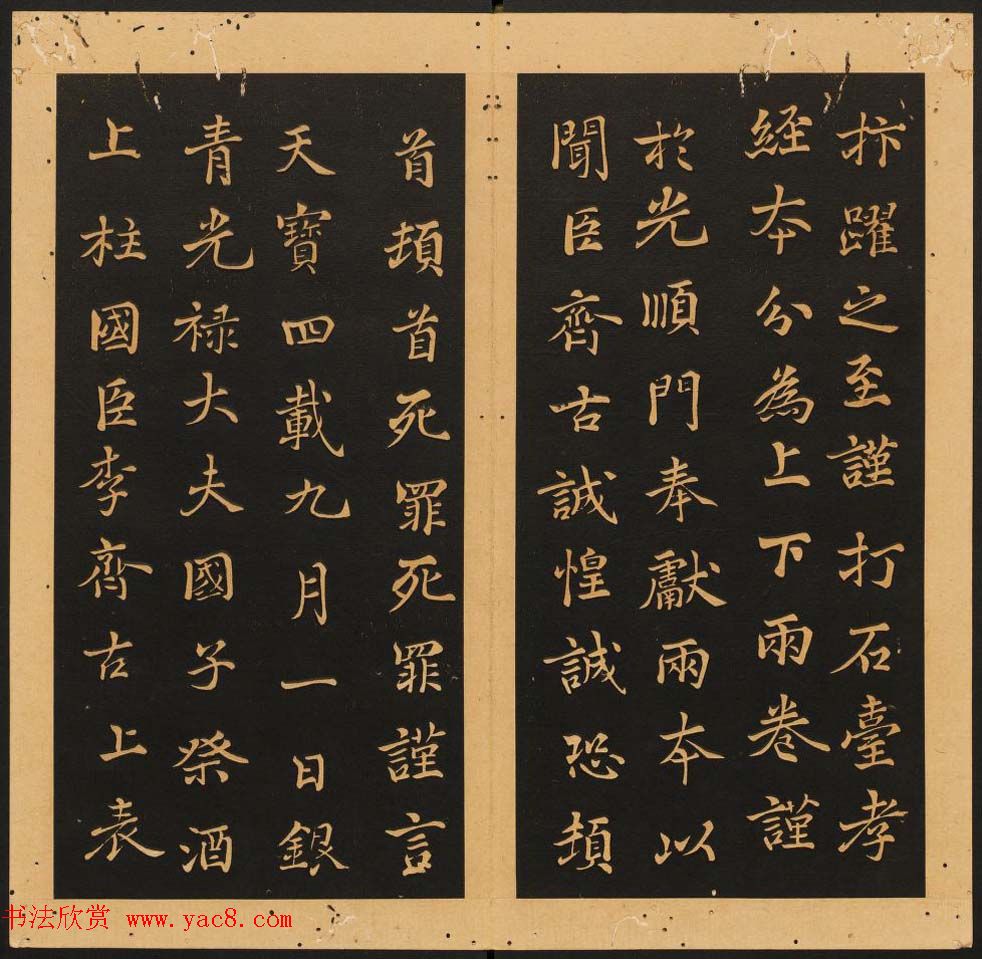 抃躍之至謹打石臺孝
經本分為上下兩卷謹
於光順門奉獻兩本以
聞臣齊古誠惶誠恐頓
首頓首死罪死罪謹言
天寶四載九月一日銀
青光祿大夫國子祭酒
上柱國臣李齊古上表
书法欣赏 www.yac8.com